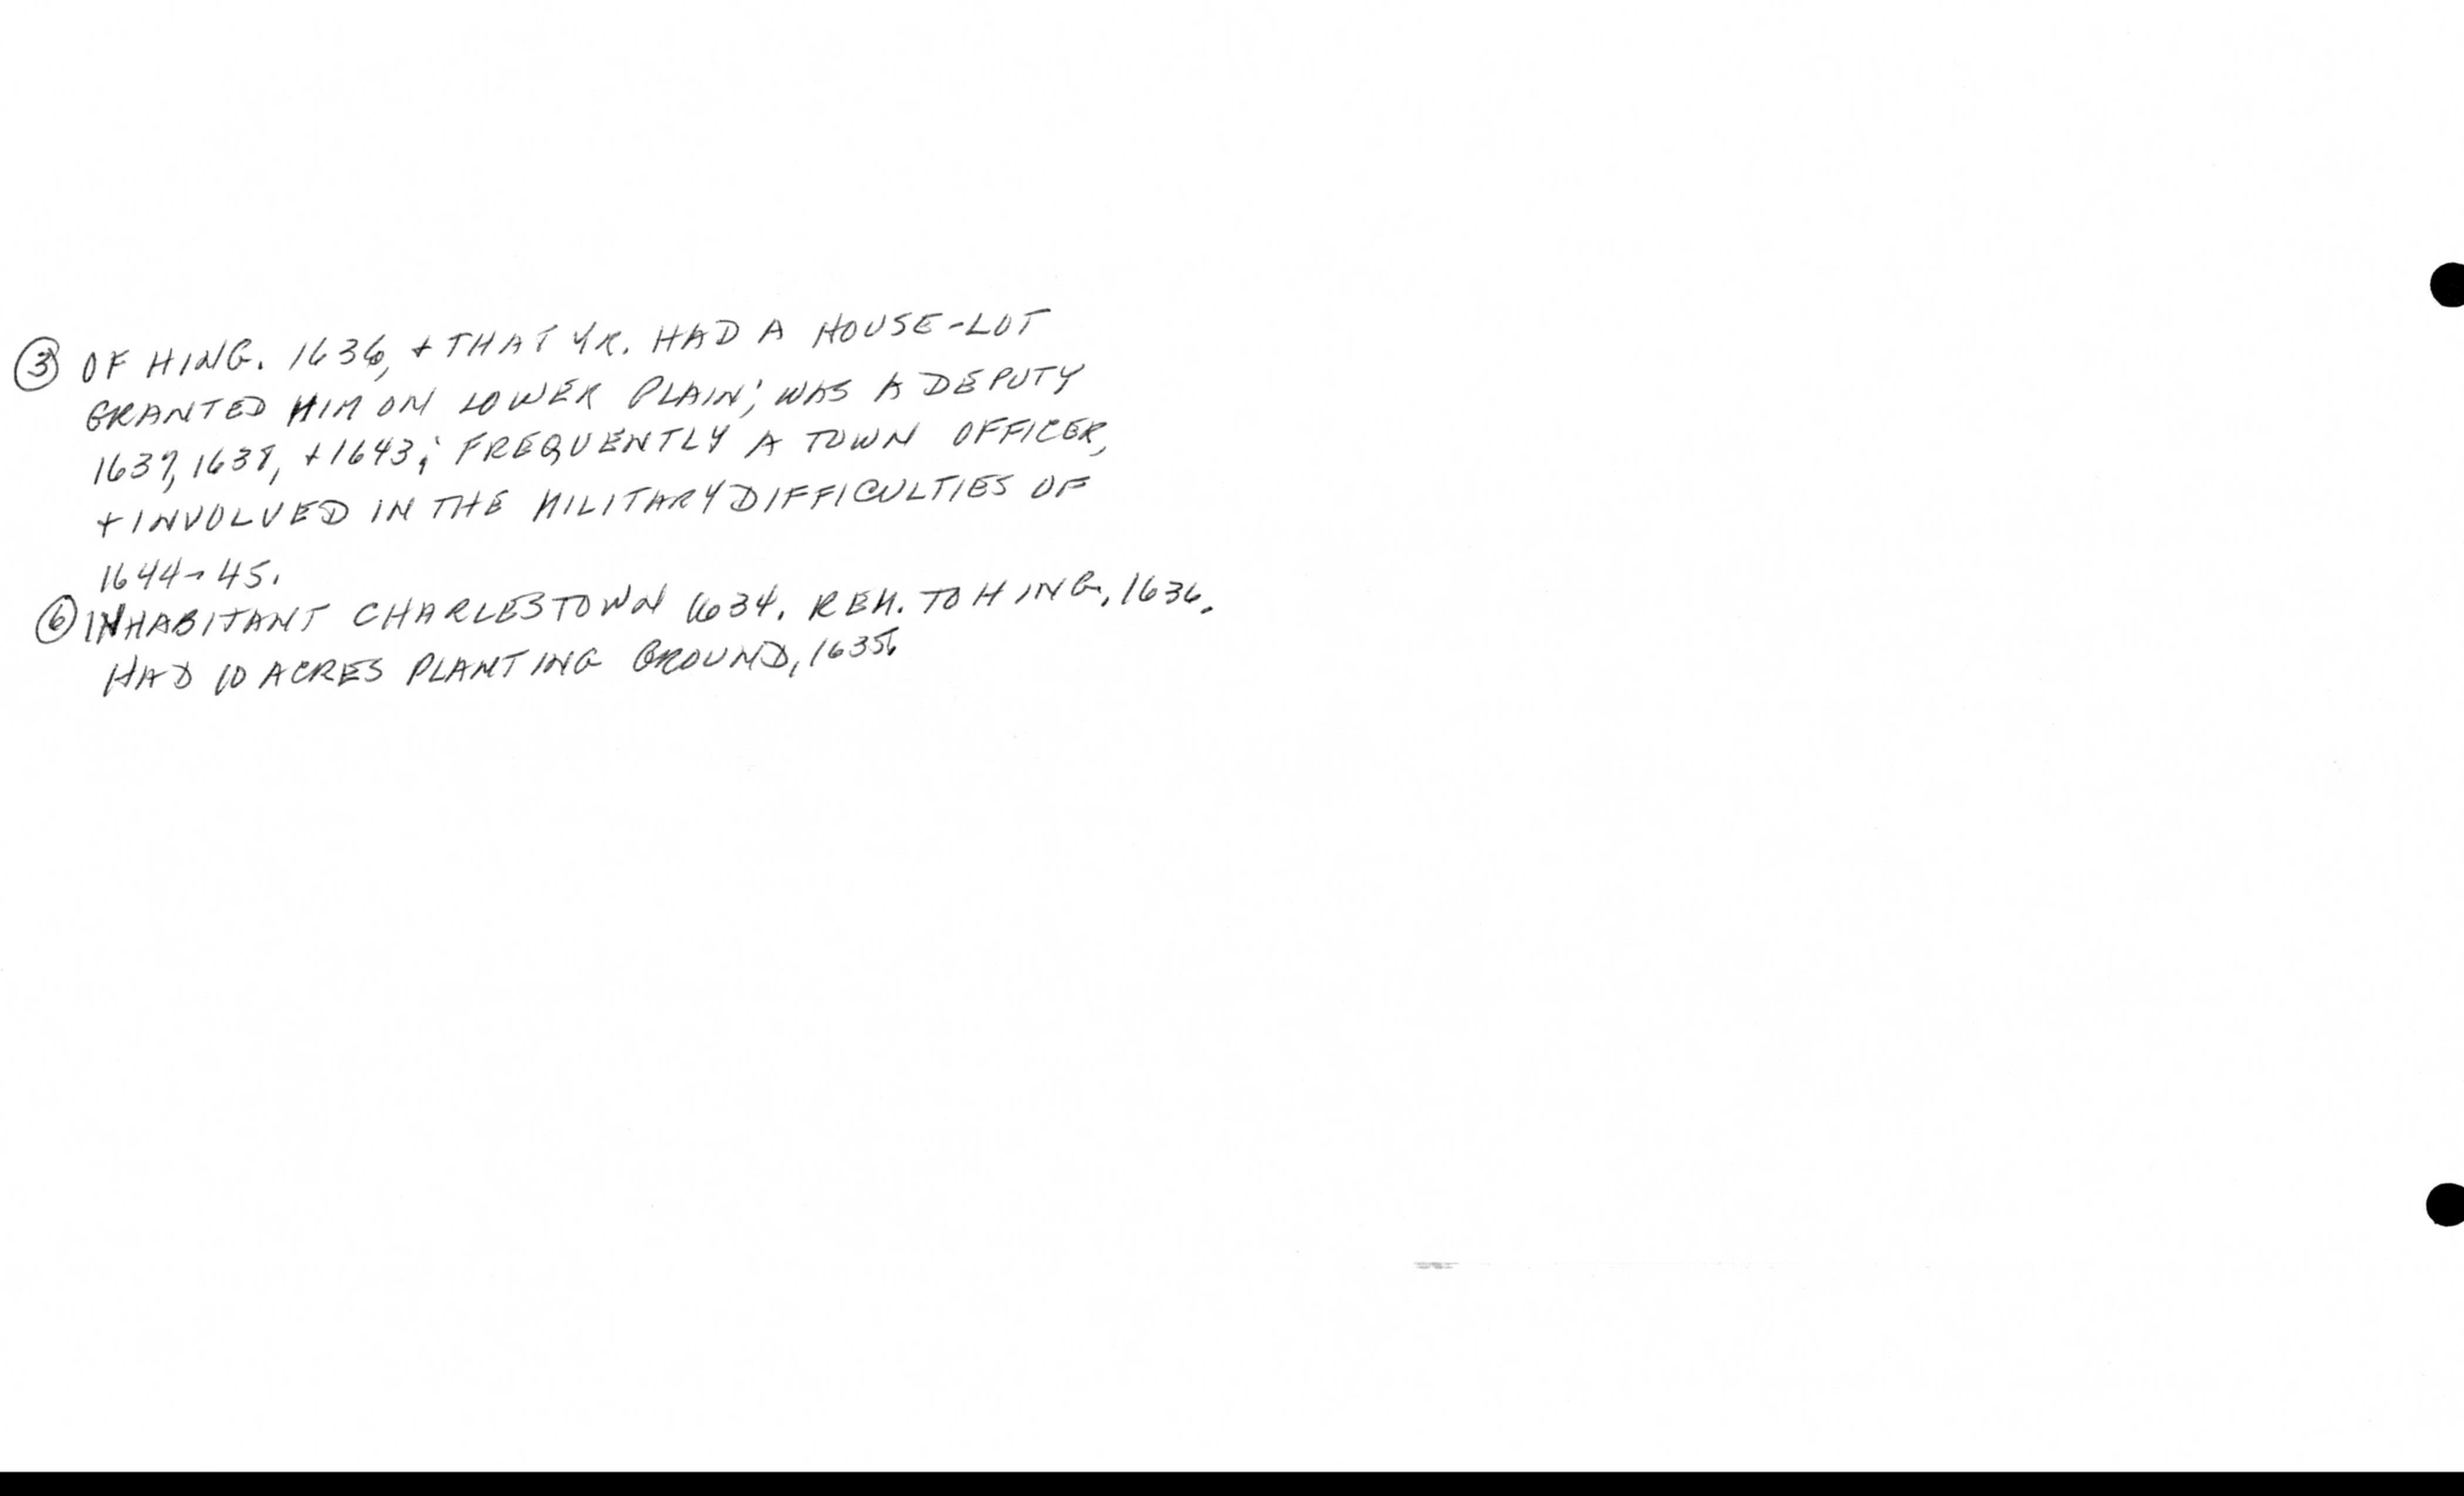 ③ OF HING. 1636, + THAT YR. HAD A HOUSE-LOT
GRANTED HIM ON LOWER PLAIN; WAS A DEPUTY
1637, 1638, + 1643; FREQUENTLY A TOWN OFFICER,
+ INVOLVED IN THE MILITARY DIFFICULTIES OF
1644-45.
⑥ INHABITANT CHARLESTOWN 1634. REM. TO HING, 1636.
HAD 10 ACRES PLANTING GROUND, 1635.